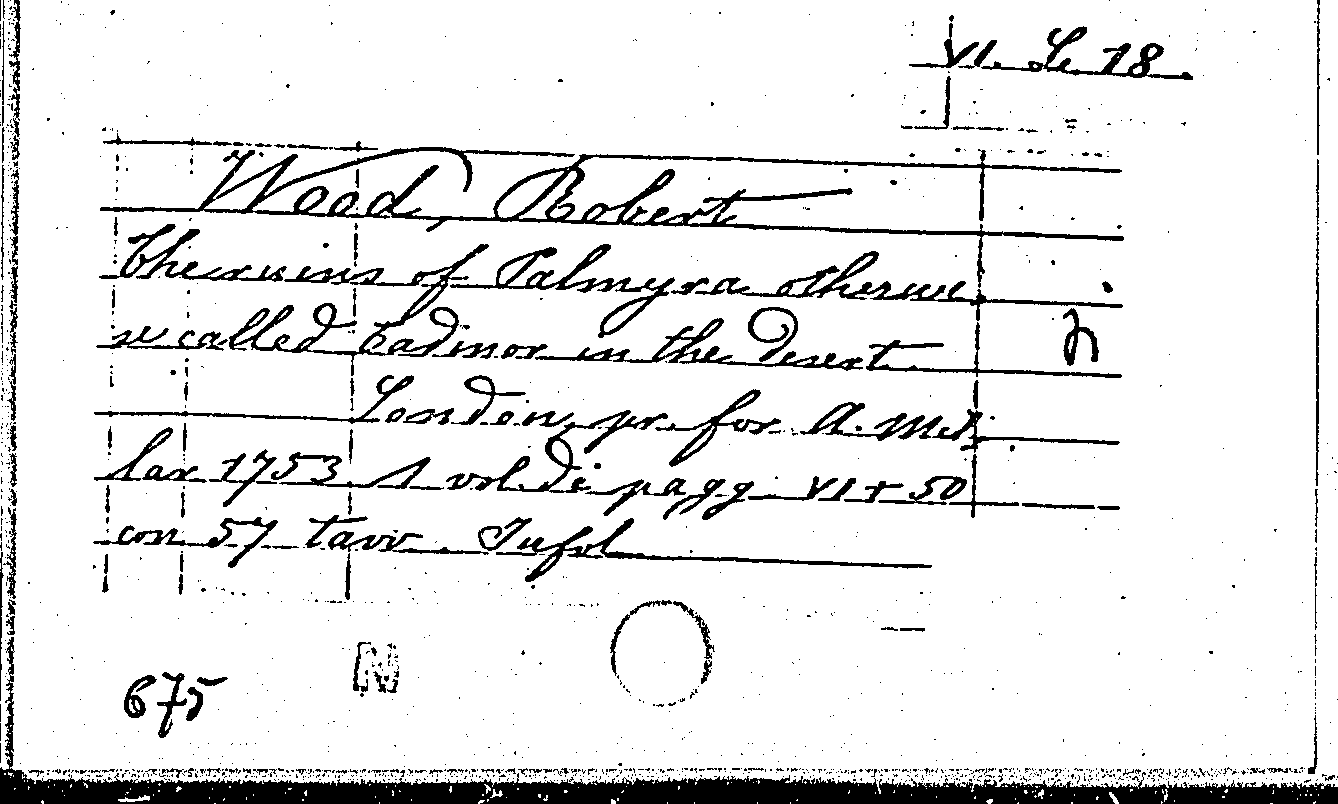 VI. Se. 18.
Wood, Robert
The ruins of Palmyra otherwi
se called Tadmor in the desert
n
London, pr. for A. Mil
lar 1753 1 vol. di pagg. VI + 50
con 57 tavv. Infol
N
675